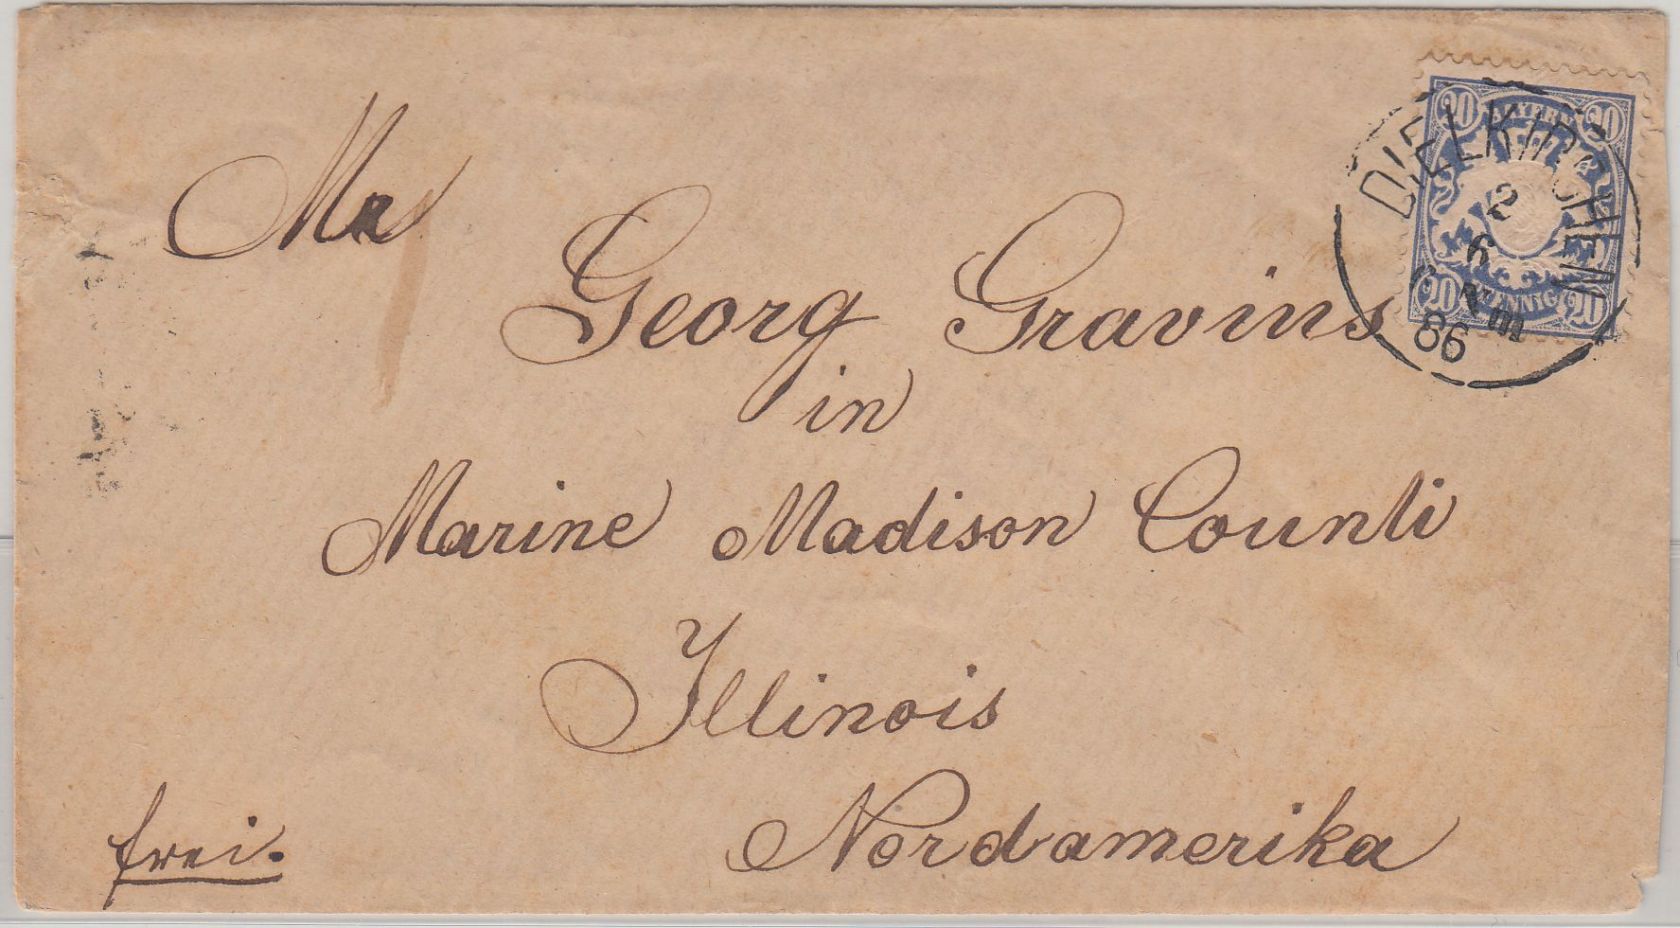 Mr
Georg Gravins
in
Marine Madison Counti
Illinois
Nordamerika
frei.
20 BAYERN 20
20 PFENNIG 20
DIELKIRCHEN
2
6
Vm
86